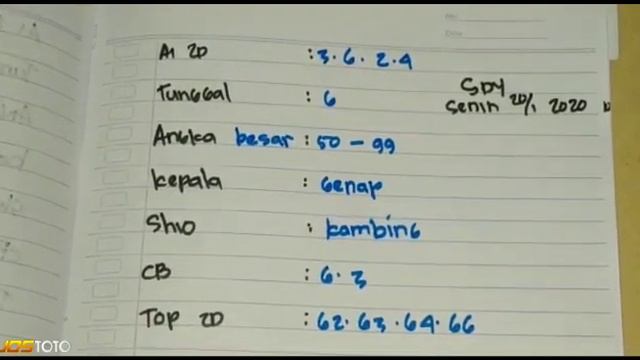 Ai 2D : 3. 6. 2. 4
SDY
Tunggal : 6
Senin 20/1 2020
Angka besar : 50 - 99
kepala : Genap
Shio : kambing
CB : 6. 3
Top 2D : 62. 63. 64. 66
JOSTOTO